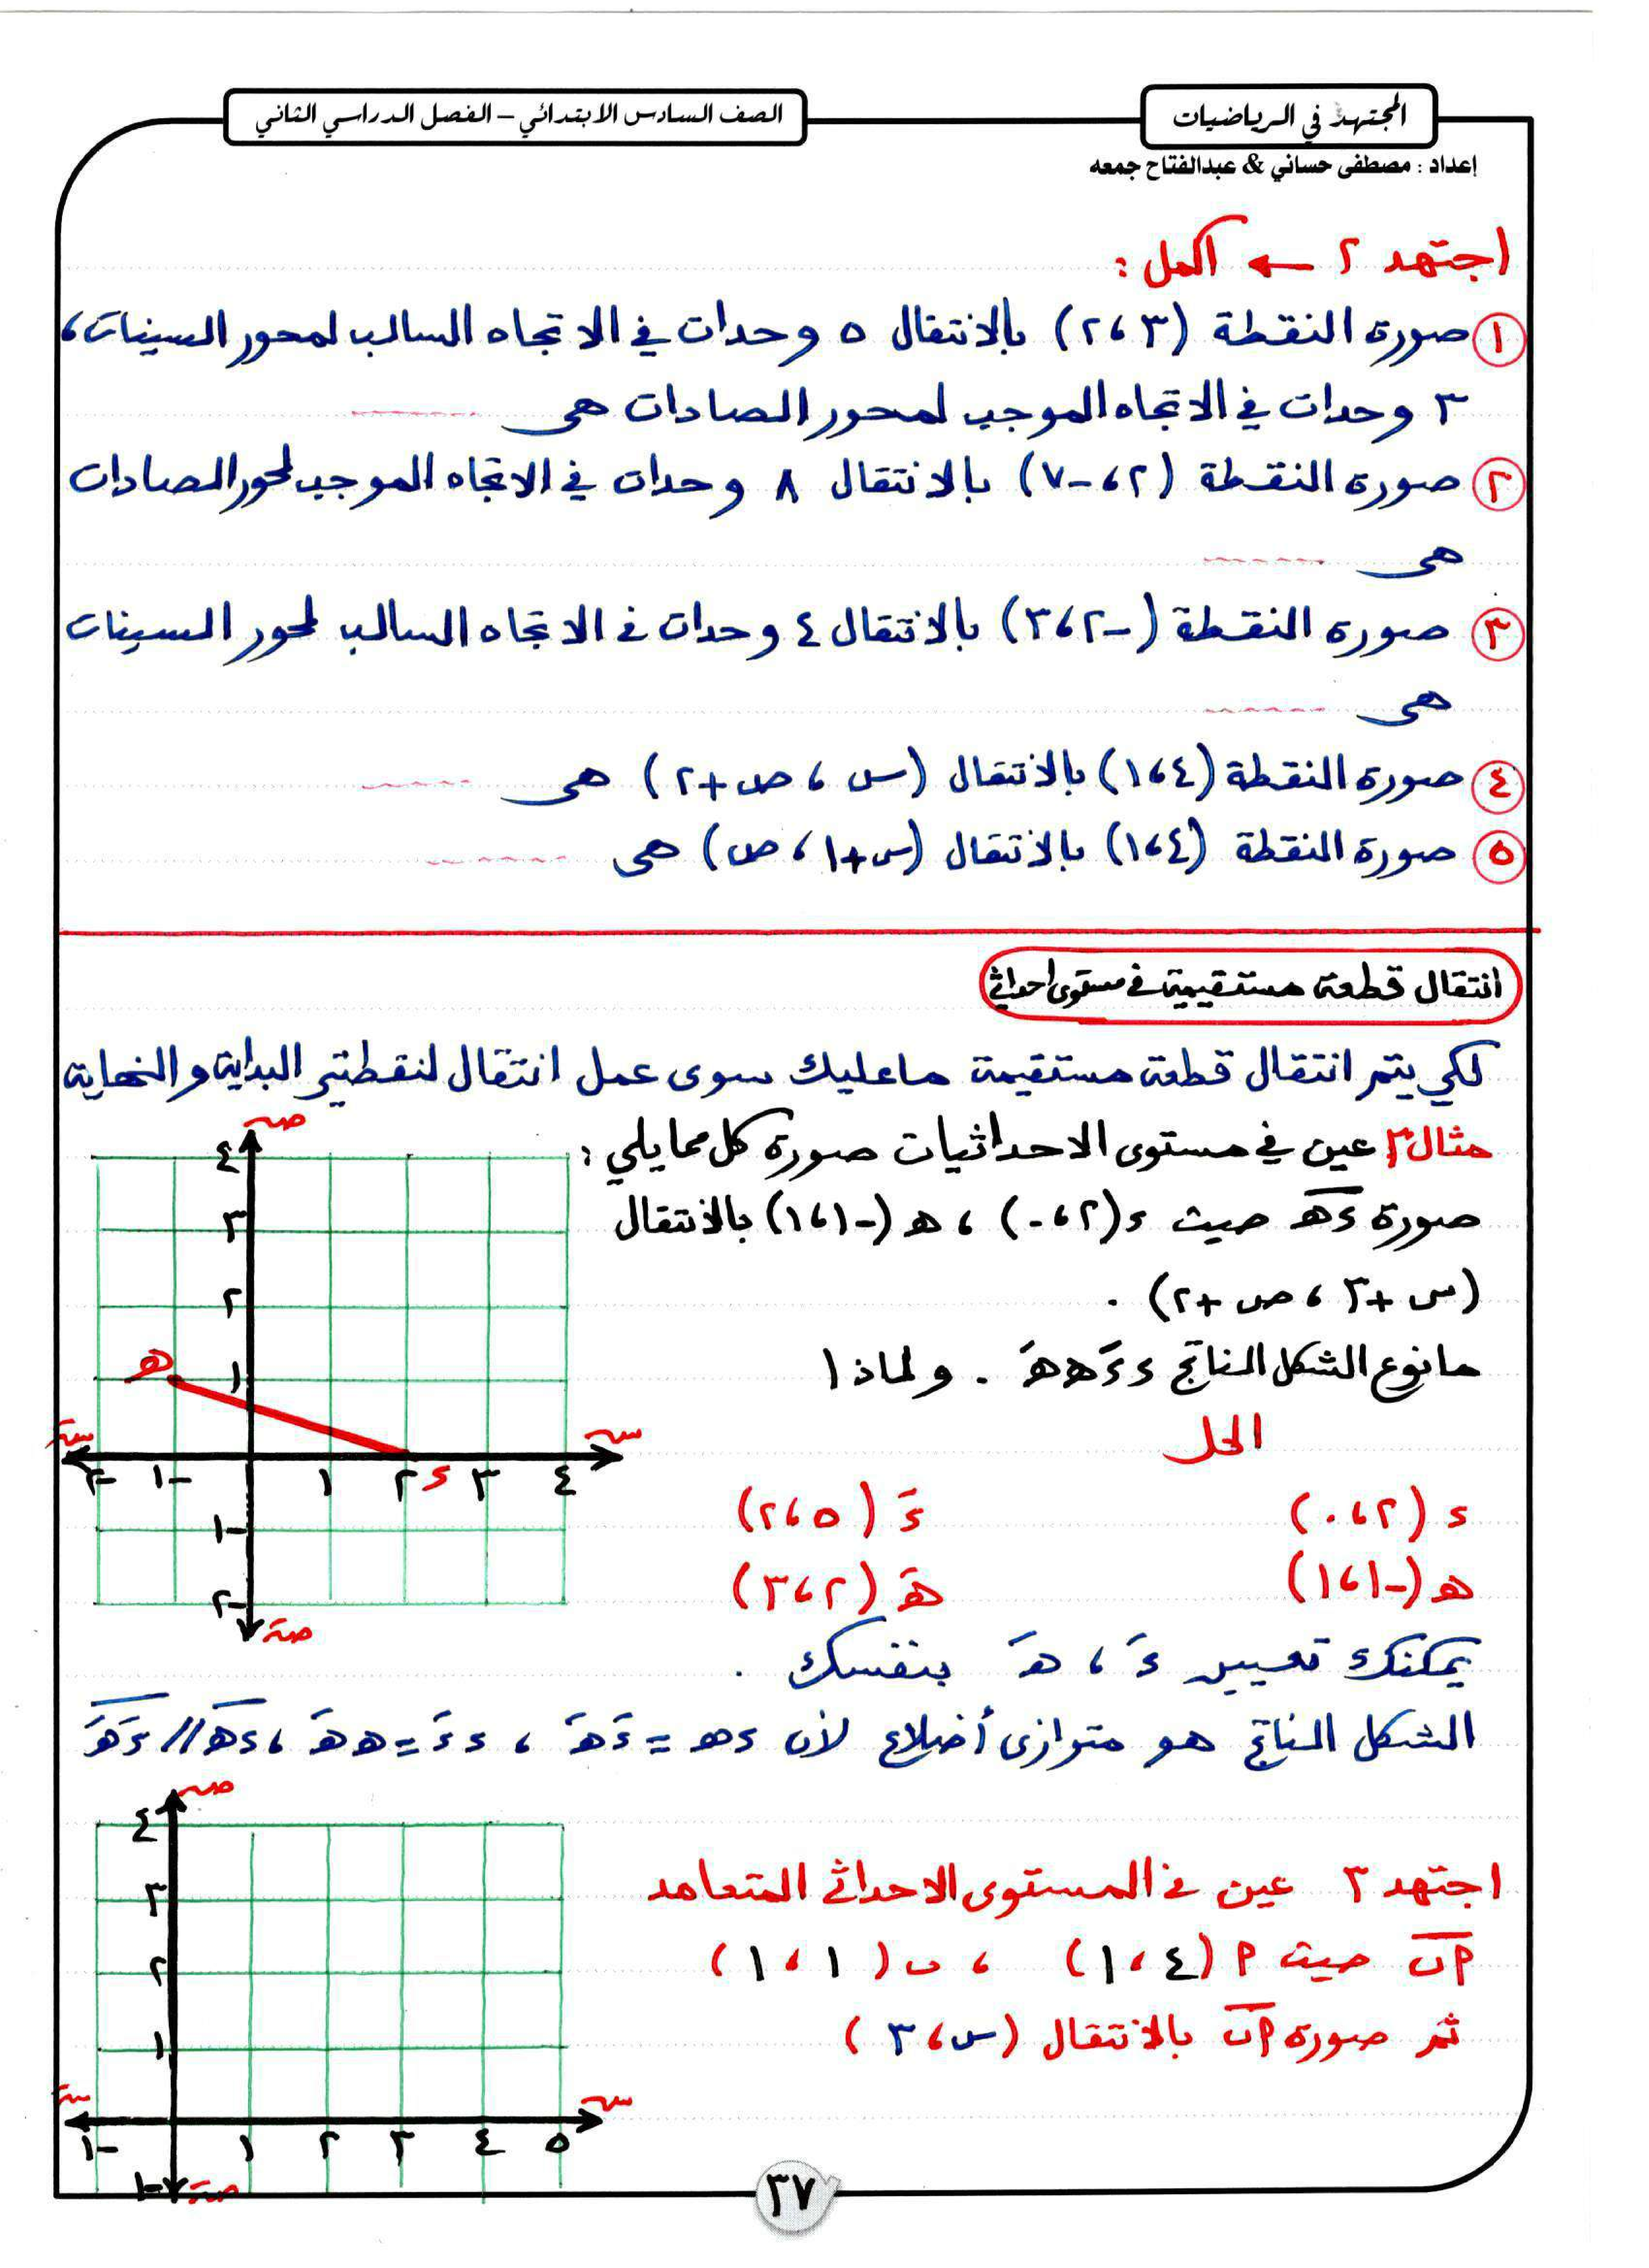 المجتهد في الرياضيات
الصف السادس الابتدائي – الفصل الدراسي الثاني
إعداد : مصطفى حساني & عبدالفتاح جمعه
اجتهد ٢ ← أكمل :
١ صورة النقطة (٣ ، ٢) بالانتقال ٥ وحدات في الاتجاه السالب لمحور السينات ،
٣ وحدات في الاتجاه الموجب لمحور الصادات هى ------
٢ صورة النقطة (٢ ، -٧) بالانتقال ٨ وحدات في الاتجاه الموجب لمحور الصادات
هى ------
٣ صورة النقطة (-٢ ، ٣) بالانتقال ٤ وحدات في الاتجاه السالب لمحور السينات
هى ------
٤ صورة النقطة (٤ ، ١) بالانتقال (س ، ص + ٢) هى ------
٥ صورة النقطة (٤ ، ١) بالانتقال (س + ١ ، ص) هى ------
انتقال قطعة مستقيمة في مستوى احداثي
لكي يتم انتقال قطعة مستقيمة ما عليك سوى عمل انتقال لنقطتي البداية والنهاية
مثال ٢ عين في مستوى الاحداثيات صورة كل مما يلي :
صورة ء هـ حيث ء (٢ ، ٠) ، هـ (-١ ، ١) بالانتقال
(س + ٣ ، ص + ٢) .
ما نوع الشكل الناتج ء ءَ هـَ هـ . ولماذا
الحل
ء (٢ ، ٠) ءَ (٥ ، ٢)
هـ (-١ ، ١) هـَ (٢ ، ٣)
يمكنك تعيين ءَ ، هـَ بنفسك .
الشكل الناتج هو متوازى أضلاع لأن ء هـ = ءَ هـَ ، ء ءَ = هـ هـَ ، ء هـ // ءَ هـَ
صَ
٤
٣
٢
١
هـ
سَ س
-٢ -١ ١ ٢ ء ٣ ٤
-١
-٢
صَ
اجتهد ٣ عين في المستوى الاحداثي المتعامد
أ ب حيث أ (٤ ، ١) ، ب (١ ، ١)
ثم صورة أ ب بالانتقال (س ، ٣)
ص
٤
٣
٢
١
سَ س
-١ ١ ٢ ٣ ٤ ٥
-١ صَ
٣٧